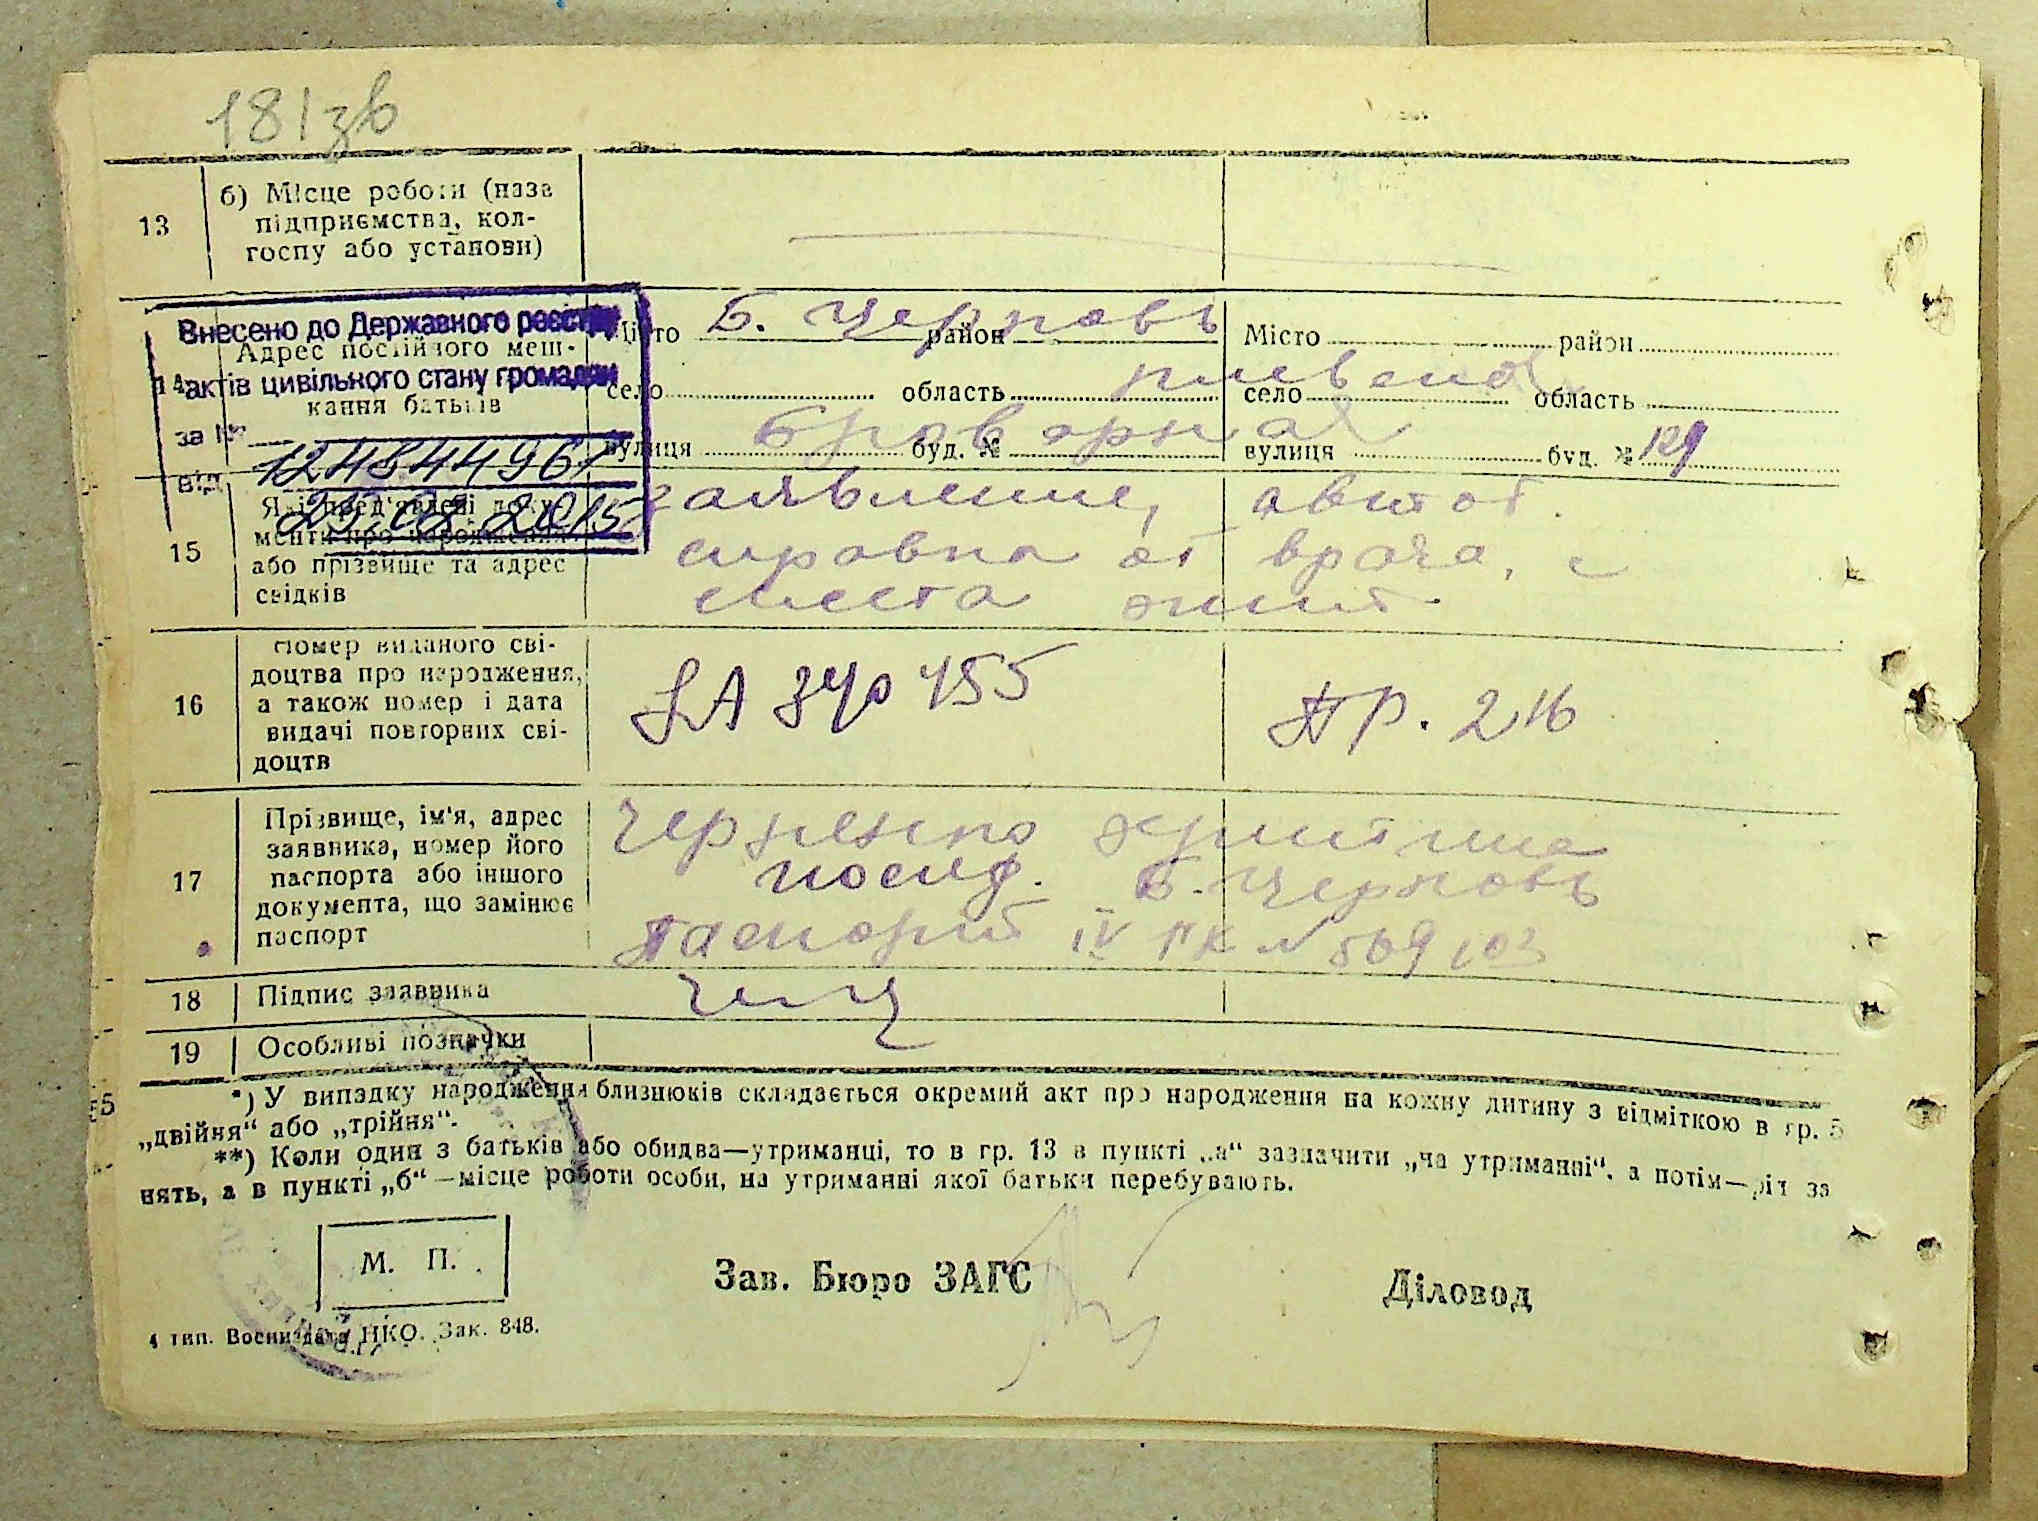 181зв
13 б) Місце роботи (назва
підприємства, кол-
госпу або установи)
Внесено до Державного реєстру
актів цивільного стану громадян
за №
124844961
від
25.08.2015
14 Адрес постійного меш-
кання батьків
Місто Б. Церковь район Місто район
село область киевская село область
вулиця буд. № вулиця буд. № 129
15 Які пред'явлені доку-
менти про народження
або прізвище та адрес
свідків
заявление,
справка от врача, с
места жит.
16 Номер виданого сві-
доцтва про народження,
а також номер і дата
видачі повторних сві-
доцтв
ПР. 216
17 Прізвище, ім'я, адрес
заявника, номер його
паспорта або іншого
документа, що замінює
паспорт
Б. Церковь
Паспорт IV № 569103
18 Підпис заявника
19 Особливі позначки
*) У випадку народження близнюків складається окремий акт про народження на кожну дитину з відміткою в гр. 5
„двійня“ або „трійня“.
**) Коли один з батьків або обидва—утриманці, то в гр. 13 в пункті „а“ зазначити „на утриманні“, а потім—рід за
нять, а в пункті „б“—місце роботи особи, на утриманні якої батьки перебувають.
М. П.
Зав. Бюро ЗАГС
Діловод
4 тип. Воениздата НКО. Зак. 848.